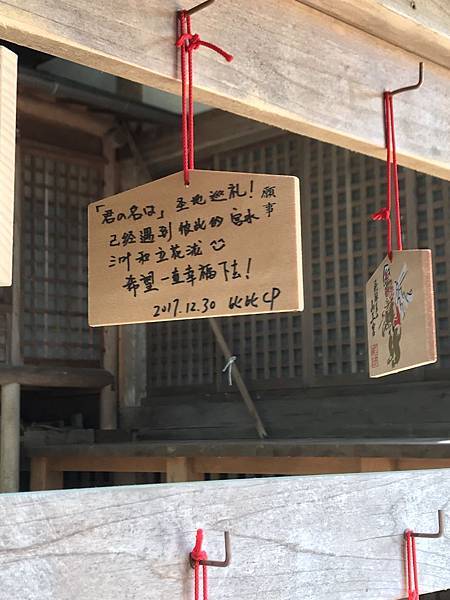 「君の名は」圣地巡礼！
已经遇到彼此的宫水
三叶和立花泷
希望一直幸福下去！
2017.12.30 比比CP
願事